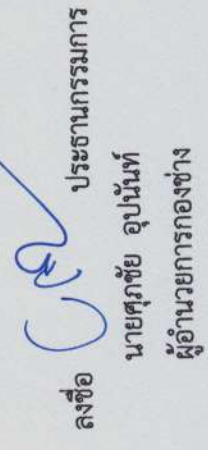 ลงชื่อ ประธานกรรมการ
นายศุภชัย อุปนันท์
ผู้อำนวยการกองช่าง